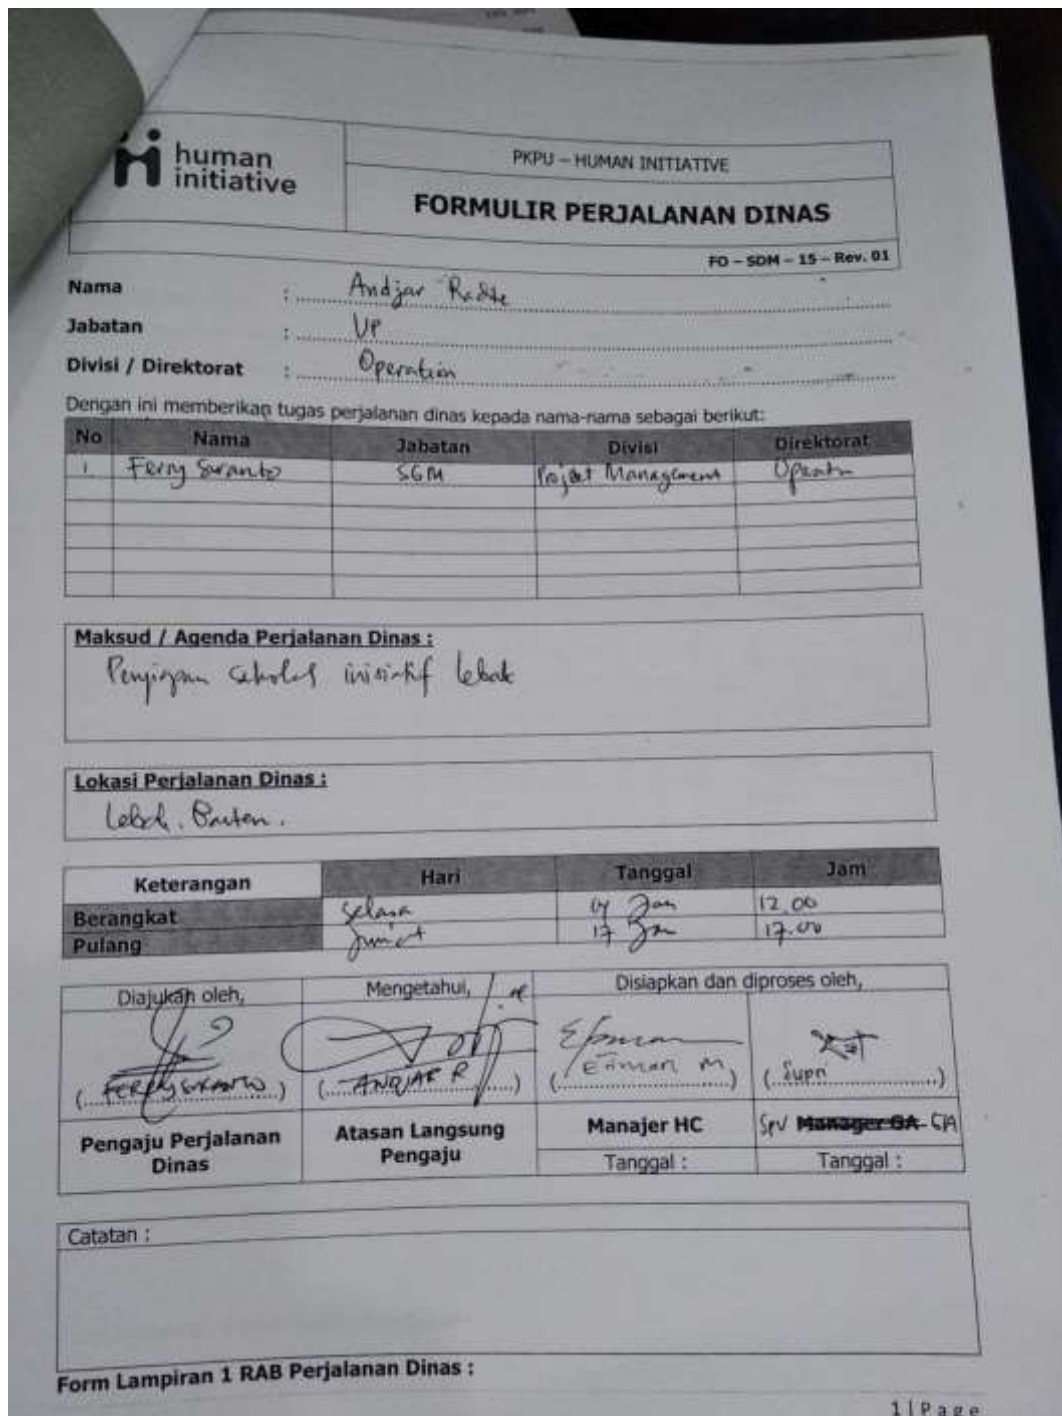 human
initiative
PKPU – HUMAN INITIATIVE
FORMULIR PERJALANAN DINAS
FO – SDM – 15 – Rev. 01
Nama : Andjar
Jabatan : VP
Divisi / Direktorat : Operation
Dengan ini memberikan tugas perjalanan dinas kepada nama-nama sebagai berikut:
No Nama Jabatan Divisi Direktorat
1. Ferry Suranto SGM Project Management
Maksud / Agenda Perjalanan Dinas :
inisiatif lebak
Lokasi Perjalanan Dinas :
Lebak. Banten.
Keterangan Hari Tanggal Jam
Berangkat Selasa Jan 12.00
Pulang Jum'at 17 Jan 17.00
Diajukan oleh, Mengetahui, Disiapkan dan diproses oleh,
(FERRY SURANTO) (ANDJAR R) ( ) ( )
Pengaju Perjalanan Dinas Atasan Langsung Pengaju Manajer HC Spv Manager GA GA
Tanggal : Tanggal :
Catatan :
Form Lampiran 1 RAB Perjalanan Dinas :
1 | Page